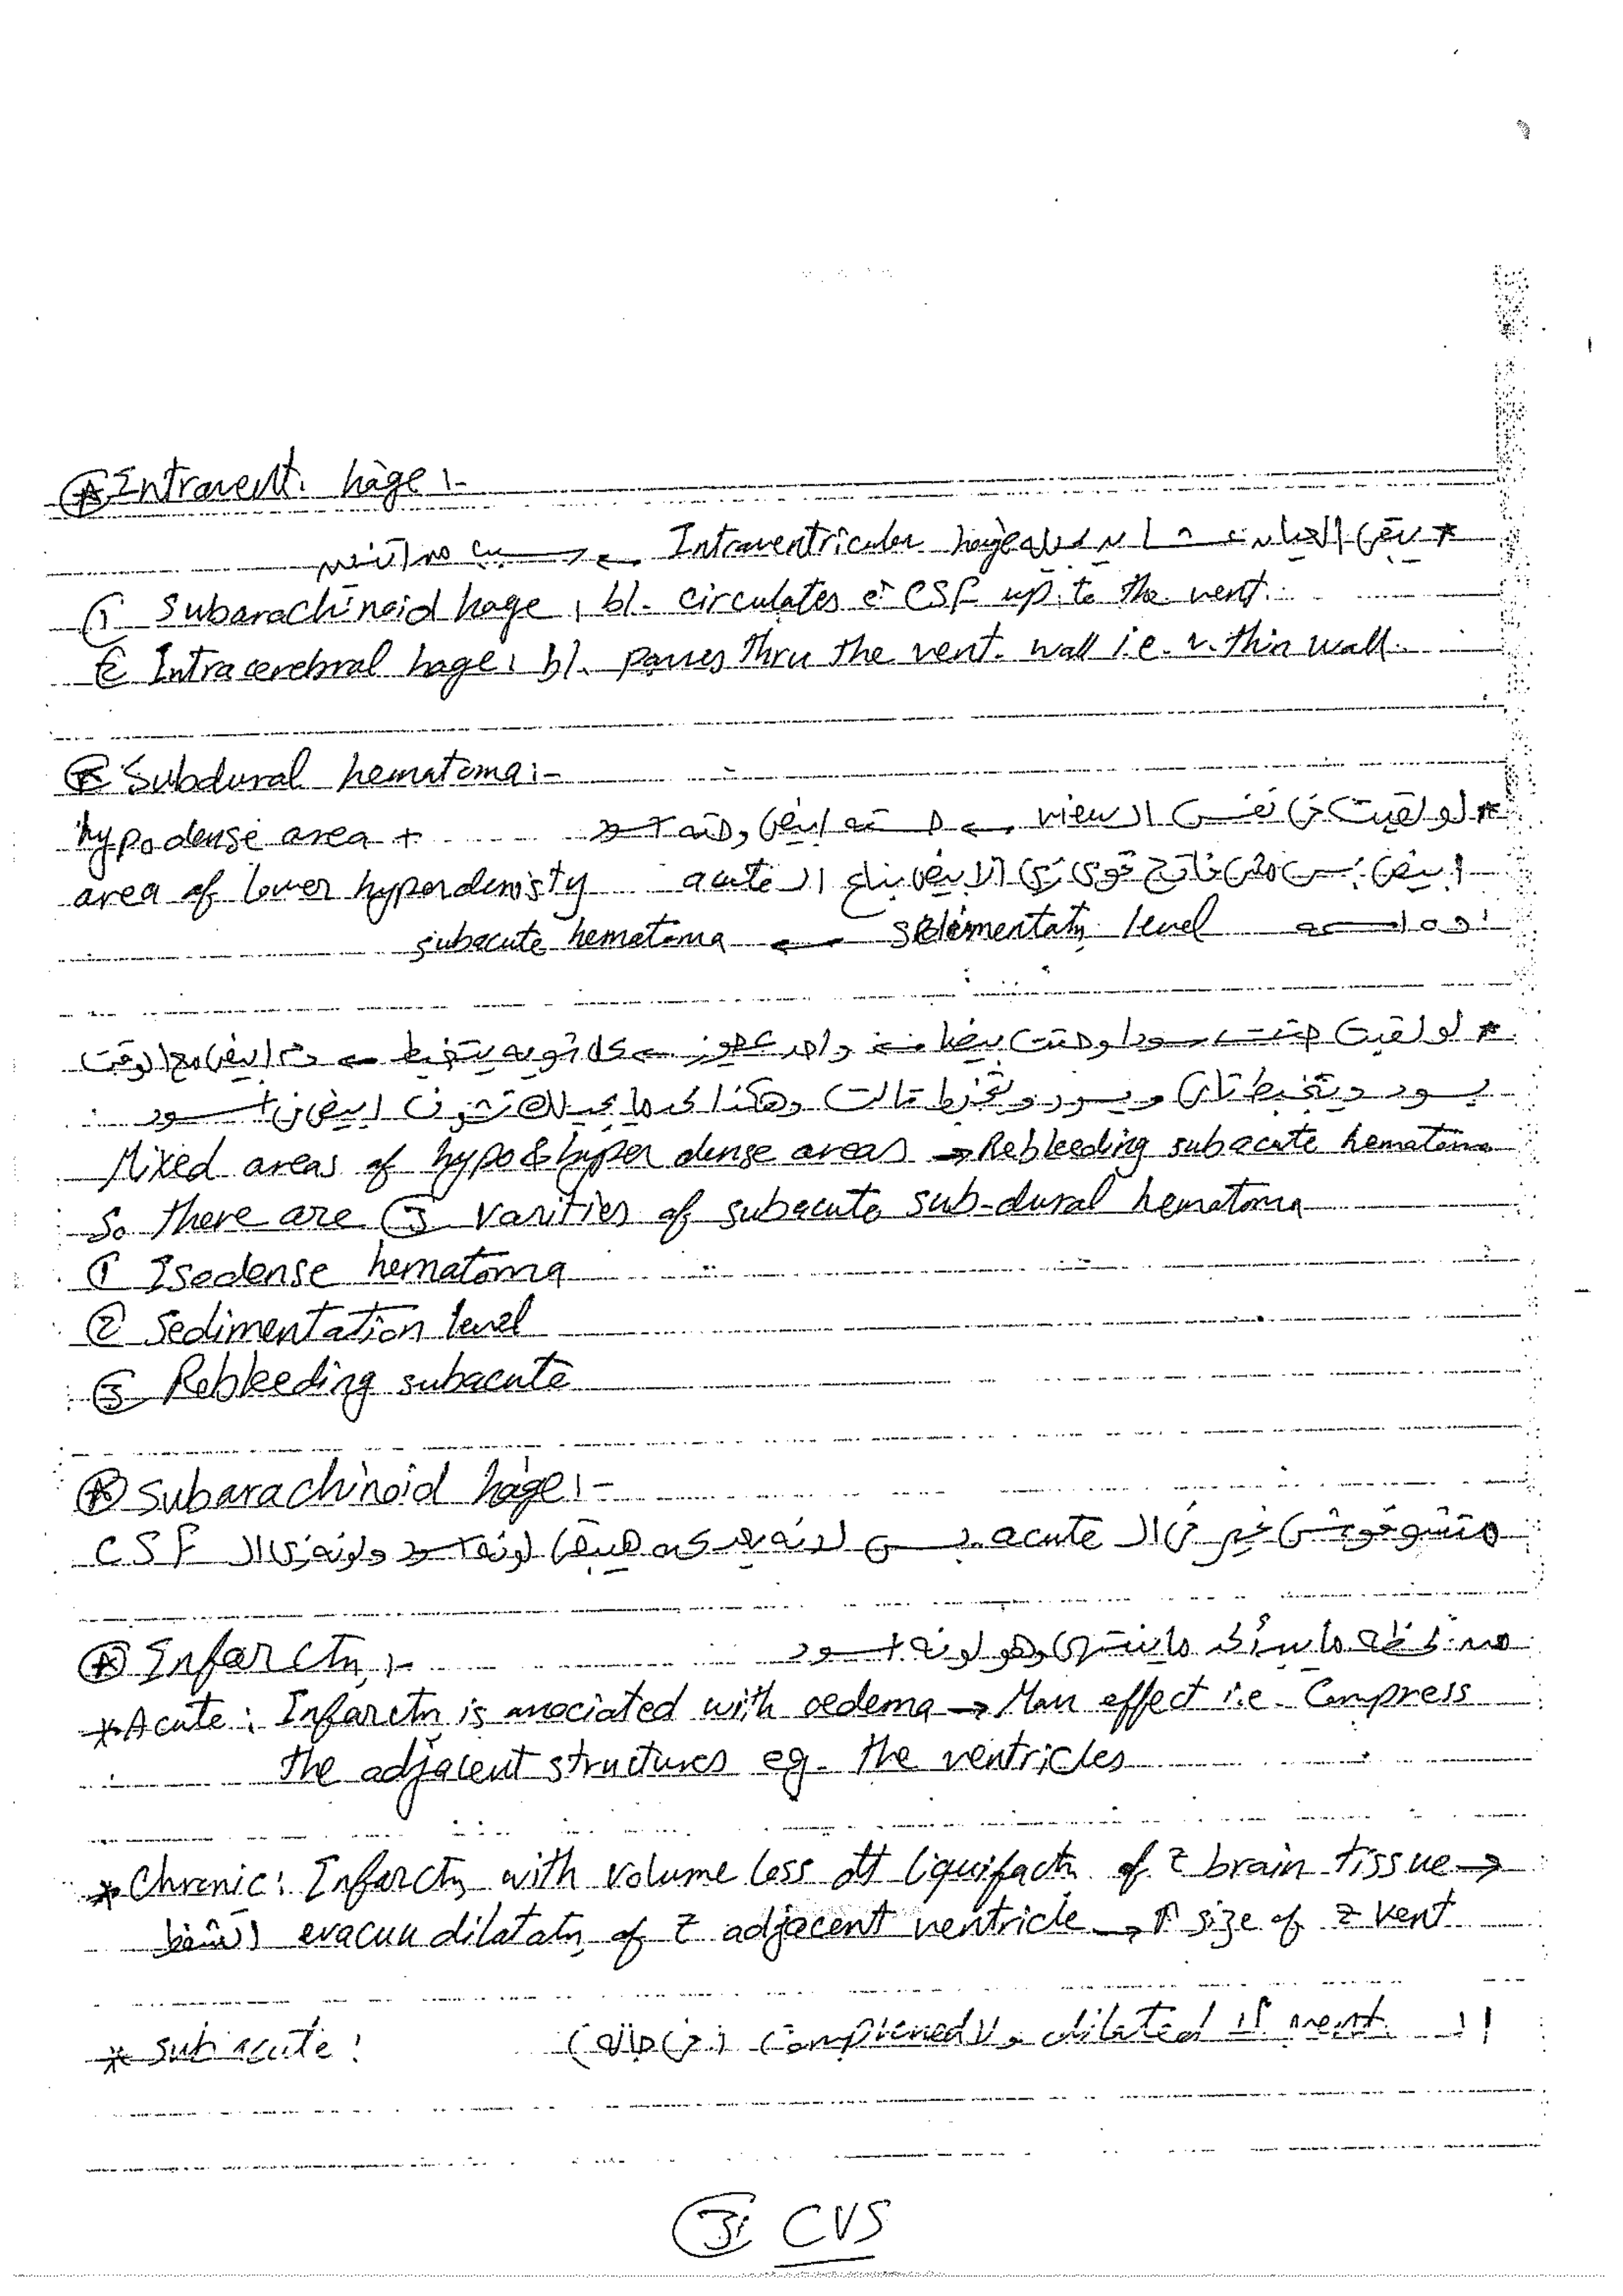 Intravent. hage :-
* بعض العيانين Intraventricular hage
① Subarachinoid hage , bl. circulates c̄ CSF up to the vent.
② Intracerebral hage , bl. passes thru the vent. wall i.e. v. thin wall.
Subdural hematoma :-
* لو لقيت في نفس الـ view ← حته ابيض وحته اسود
hypodense area +
ابيض بس مش فاتح قوي زي الابيض بتاع الـ acute
area of lower hyperdenisty
level
subacute hematoma ←
* لو لقيت حتت سودا وحتت بيضا واحد عجوز ← كل شويه يتخبط ← دم ابيض مع الوقت
يسود ويتخبط تاني ويسود ويتخبط تالت وهكذا لحد ما يجيلك تشوف ابيض في اسود
Mixed areas of hypo & hyper dense areas → Rebleeding subacute hematoma
So there are ③ varities of subacute sub-dural hematoma
① Isodense hematoma
② Sedimentation level
③ Rebleeding subacute
Subarachinoid hage :-
متشوفوش غير في الـ acute بس لانه بعد كده هيبقى لونه اسود ولونه زي الـ CSF
Infarctn :-
وهو لونه اسود
* Acute : Infarctn is associated with oedema → Mass effect i.e. Compress
the adjacent structures eg. the ventricles
* Chronic : Infarctn with volume loss dt liquifactn of z brain tissue →
evacuu dilatatn of z adjacent ventricle → ↑ size of z vent
* subacute :
الـ vent. لا dilated ولا compressed (في حاله)
③ CVS